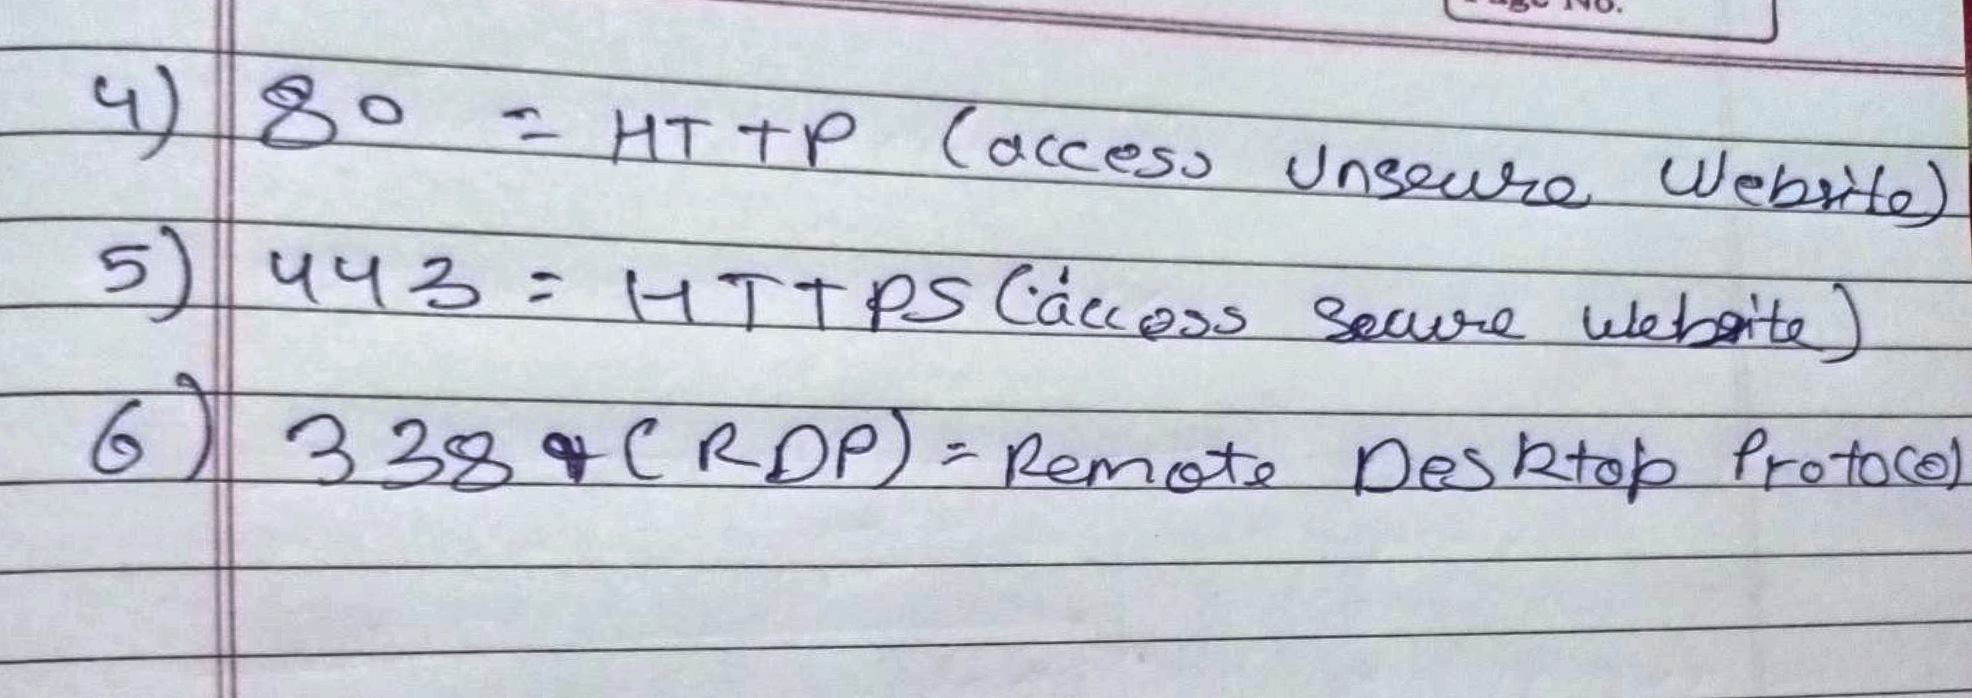 Page No.
4) 80 = HTTP (access Unsecure Website)
5) 443 = HTTPS (access Secure Website)
6) 3389 (RDP) = Remote Desktop Protocol